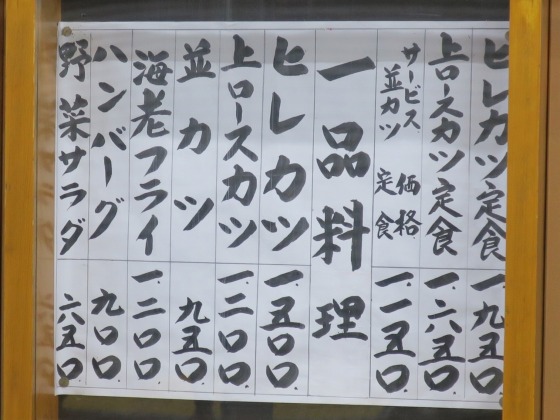 ヒレカツ定食 一、九五〇
上ロースカツ定食 一、六五〇
サービス価格
並カツ定食 一、一五〇
一品料理
ヒレカツ 一、五〇〇
上ロースカツ 一、二〇〇
並カツ 九五〇
海老フライ 一、二〇〇
ハンバーグ 九〇〇
野菜サラダ 六五〇